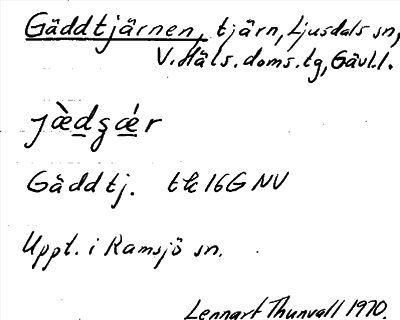 Gäddtjärnen, tjärn, Ljusdals sn,
V. Häls. doms.tg, Gävl.l.
jæ̀dʒǽr
Gäddtj. tk 16G NV
Uppt. i Ramsjö sn.
Lennart Thunvall 1970.